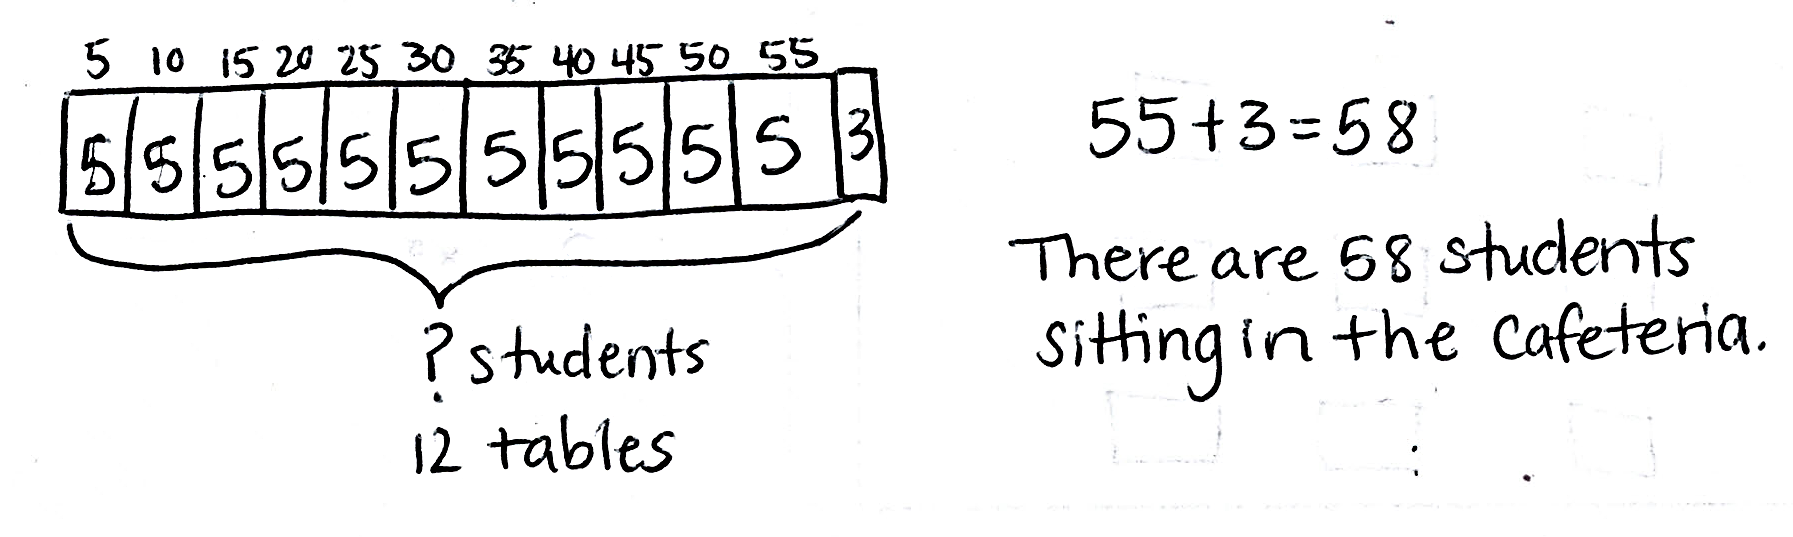 5 10 15 20 25 30 35 40 45 50 55
5 5 5 5 5 5 5 5 5 5 5 3
? students
12 tables
55+3=58
There are 58 students
sitting in the cafeteria.